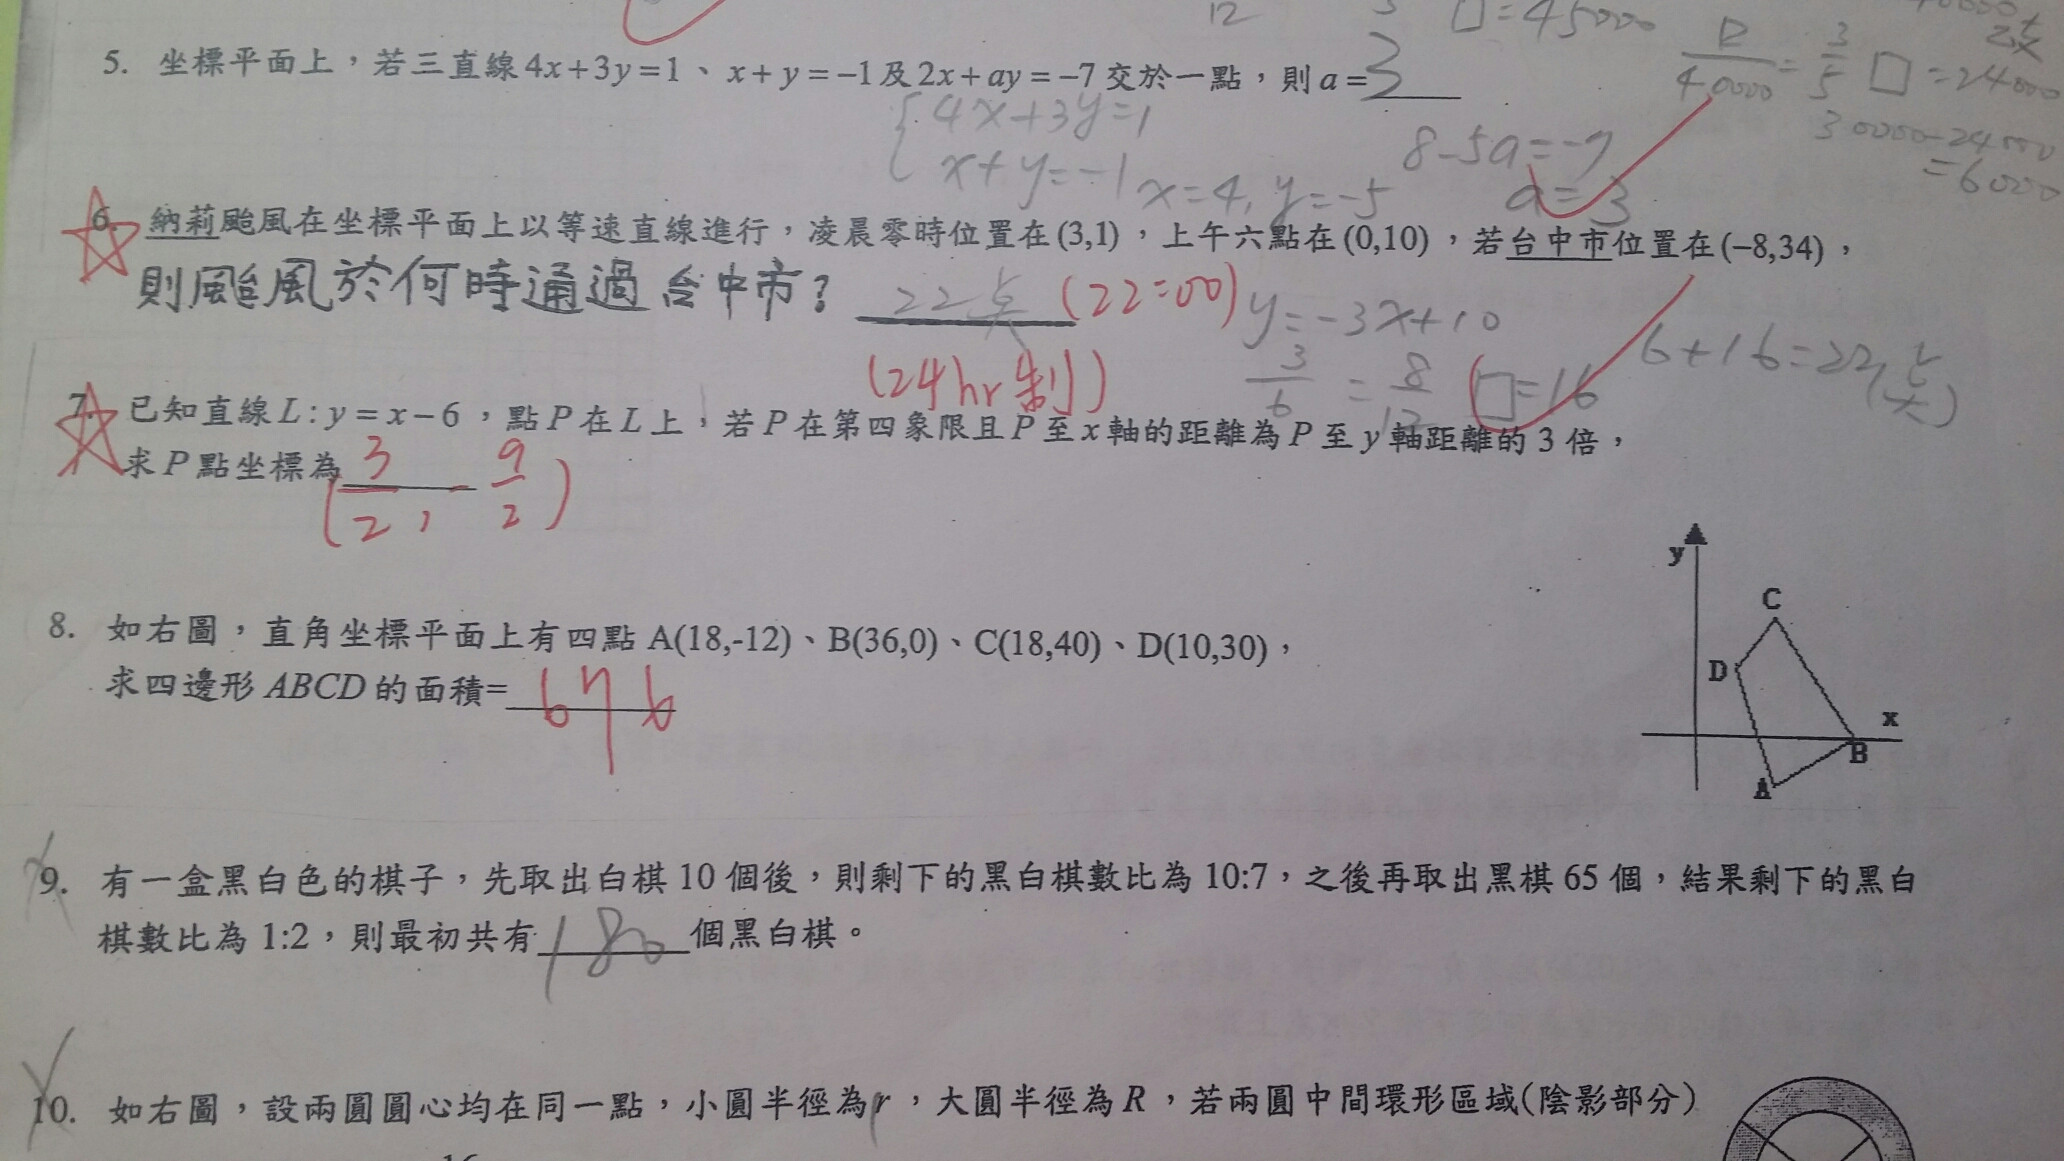 12
□=45000
5. 坐標平面上，若三直線4x+3y=1、x+y=−1及2x+ay=−7交於一點，則a=3
□/40000=3/5 □=24000
30000-24000
=6000
{4x+3y=1
x+y=-1 x=4, y=-5
8-5a=-7
a=3
6. 納莉颱風在坐標平面上以等速直線進行，凌晨零時位置在(3,1)，上午六點在(0,10)，若台中市位置在(−8,34)，
則颱風於何時通過台中市? 22点 (22:00)
(24hr制)
y=-3x+10
3/6=8/□ □=16
6+16=22(点)
7. 已知直線L:y=x−6，點P在L上，若P在第四象限且P至x軸的距離為P至y軸距離的3倍，
求P點坐標為(3/2, -9/2)
8. 如右圖，直角坐標平面上有四點A(18,-12)、B(36,0)、C(18,40)、D(10,30)，
求四邊形ABCD的面積=676
y
C
D
x
B
A
9. 有一盒黑白色的棋子，先取出白棋10個後，則剩下的黑白棋數比為10:7，之後再取出黑棋65個，結果剩下的黑白
棋數比為1:2，則最初共有180個黑白棋。
10. 如右圖，設兩圓圓心均在同一點，小圓半徑為r，大圓半徑為R，若兩圓中間環形區域(陰影部分)